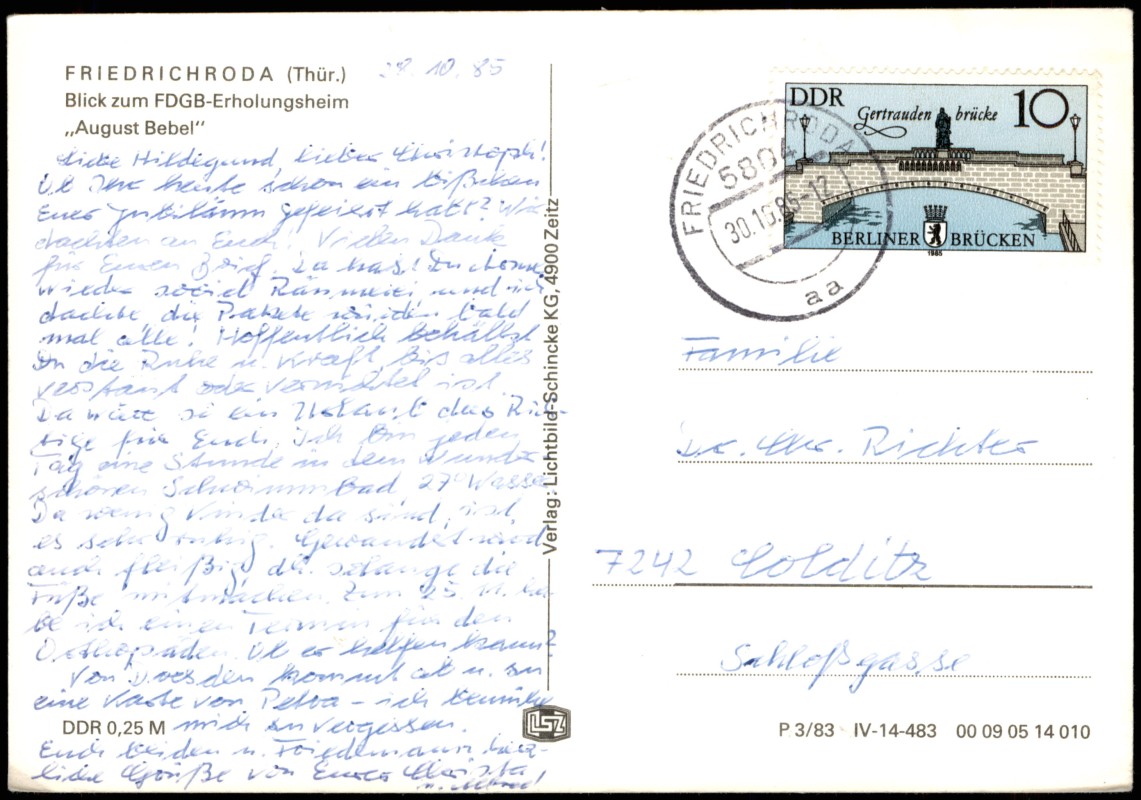 FRIEDRICHRODA (Thür.)
Blick zum FDGB-Erholungsheim
„August Bebel"
29. 10. 85
Liebe Hildegund, lieber Christoph!
Ob Ihr heute schon ein bißchen
Euer Jubiläum gefeiert habt? Wir
dachten an Euch! Vielen Dank
für Euren Brief. Da hast Du schon
wieder soviel Räumerei, und ich
dachte die Pakete würden bald
mal alle! Hoffentlich behältst
Du die Ruhe u. Kraft, bis alles
verstaut oder vermittelt ist.
Da wäre so ein Urlaub das Rich-
tige für Euch. Ich bin jeden
Tag eine Stunde in dem wunder-
schönen Schwimmbad 27° Wasser
Da wenig Kinder da sind, ist
es sehr ruhig. Gewandert wird
auch fleißig, d.h. solange die
Füße mitmachen. Zum 25. 11. ha-
be ich einen Termin für den
Orthopäden. Ob er helfen kann?
Von Dresden kommt ab u. zu
eine Karte von Petra - ich
mich zu vergessen.
Euch beiden u. Friedemann herz-
liche Grüße von Eurer Christa
DDR 0,25 M
Verlag: Lichtbild-Schincke KG, 4900 Zeitz
LSZ
DDR
Gertrauden brücke
10
BERLINER BRÜCKEN
1985
FRIEDRICHRODA
5804
30.10.85-12
aa
Familie
Dr. Chr. Richter
7242 Colditz
Schloßgasse
P 3/83 IV-14-483 00 09 05 14 010